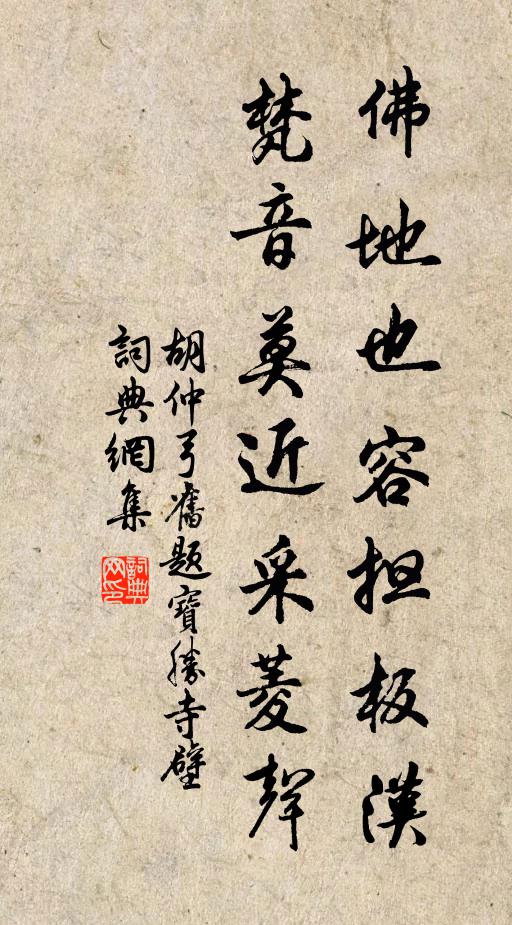 佛地也容担板漢
梵音莫近采菱聲
胡仲弓舊題寶勝寺壁
詞典網集
詞典网印